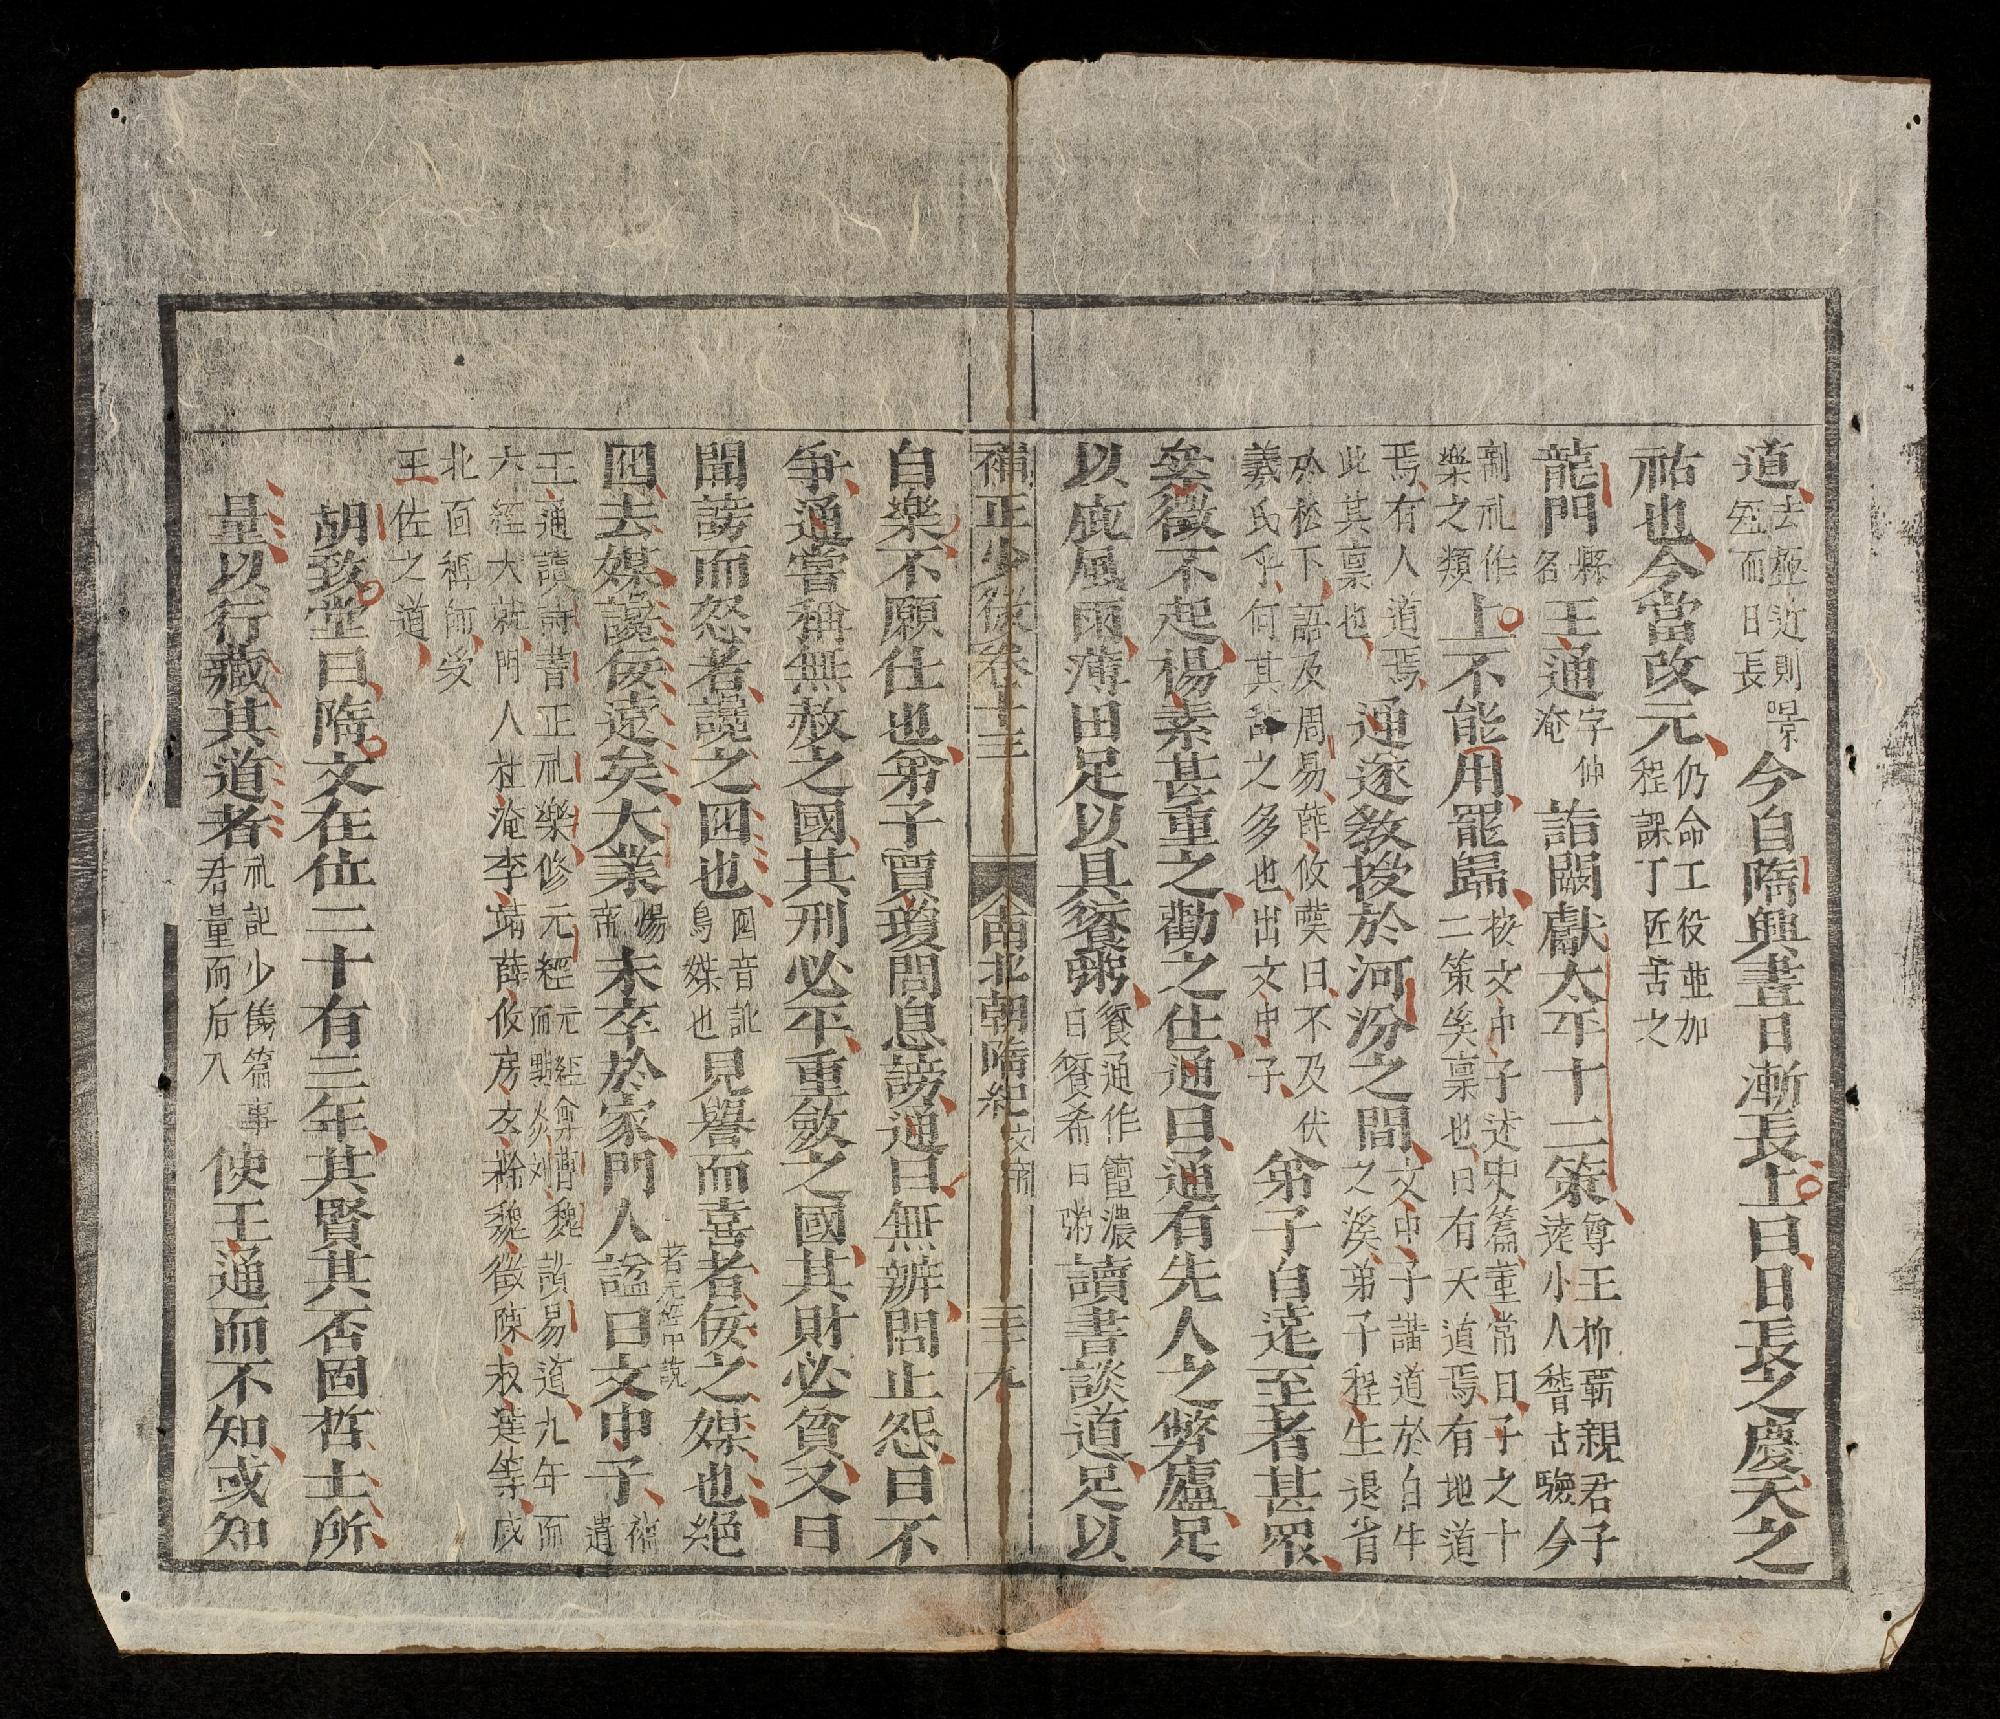 道去極近則晷短而日長今自隋興晝日漸長上曰日長之慶天之
祐也今當改元仍命工役並加程課丁匠苦之
龍門縣名王通字仲淹詣闕獻太平十二策尊王抑霸親君子遠小人稽古驗今
制礼作樂之類上不能用罷歸按文中子述史篇董常曰子之十二策奚稟也曰有天道焉有地道
焉有人道焉此其稟也通遂敎授於河汾之間文中子講道於白牛之溪弟子程生退省
於松下語及周易薛收歎曰不及伏羲氏乎何其之多也出文中子弟子自遠至者甚眾
累徵不起楊素甚重之勸之仕通曰通有先人之弊廬足
以庇風雨薄田足以具饘粥饘通作饘濃曰饘希曰粥讀書談道足以
補正少微卷十三 南北朝隋紀文帝 三十九
自樂不願仕也弟子賈瓊問息謗通曰無辨問止怨曰不
爭通嘗稱無赦之國其刑必平重斂之國其財必貧又曰
聞謗而怒者讒之囮也囮音訛鳥媒也見譽而喜者佞之媒也絕
囮去媒讒佞遠矣大業煬帝末卒於家門人諡曰文中子補遺
著元經中說
王通讀詩書正礼樂修元經元經會曹魏而黜炎刘讚易道九年而
六經大就門人杜淹李靖薛收房玄齡魏徵陳叔達等咸
北面稱師受
王佐之道
胡致堂曰隋文在位二十有三年其賢其否固哲士所
量以行藏其道者礼記少儀篇事君量而后入使王通而不知或知